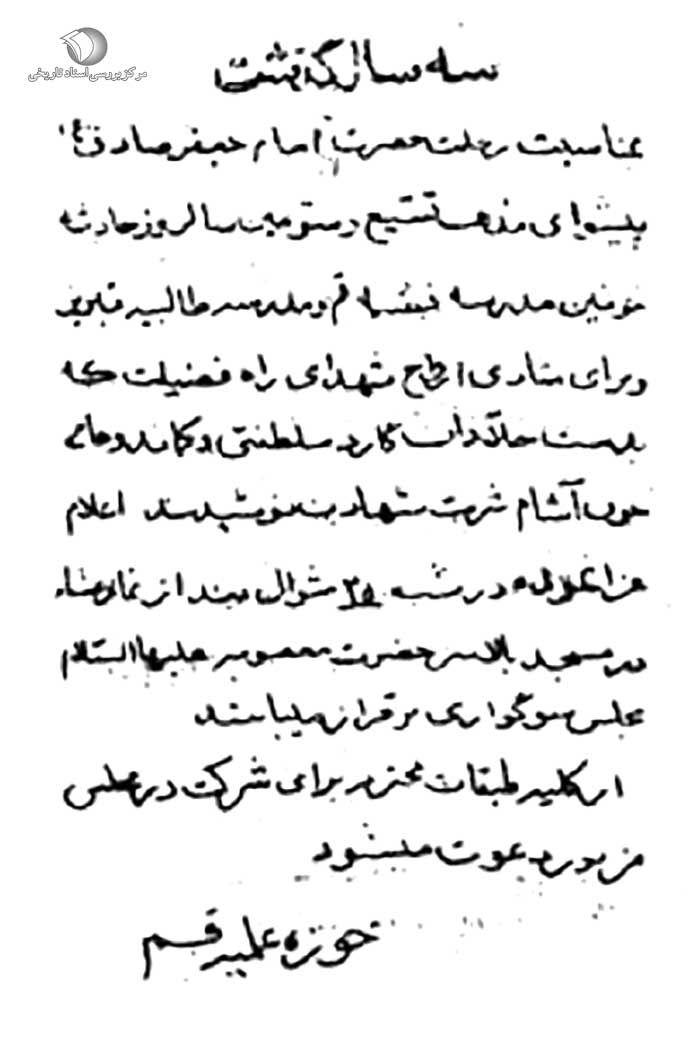 مرکز بررسی اسناد تاریخی
سه سال گذشت
بمناسبت رحلت حضرت امام جعفر صادق (ع)
پیشوای مذهب تشیع و سومین سالروز حادثه
خونین مدرسه فیضیه قم و مدرسه طالبیه تبریز
و برای شادی ارواح شهدای راه فضیلت که
بدست جلادان گارد سلطنتی و کماندوهای
خون آشام شربت شهادت نوشیدند اعلام
عزا نموده در شب ۲۵ شوال بعد از نماز عشاء
در مسجد بالاسر حضرت معصومه علیها السلام
مجلس سوگواری برقرار میباشد
از کلیه طبقات محترم برای شرکت در مجلس
مزبور دعوت میشود
حوزه علمیه قم